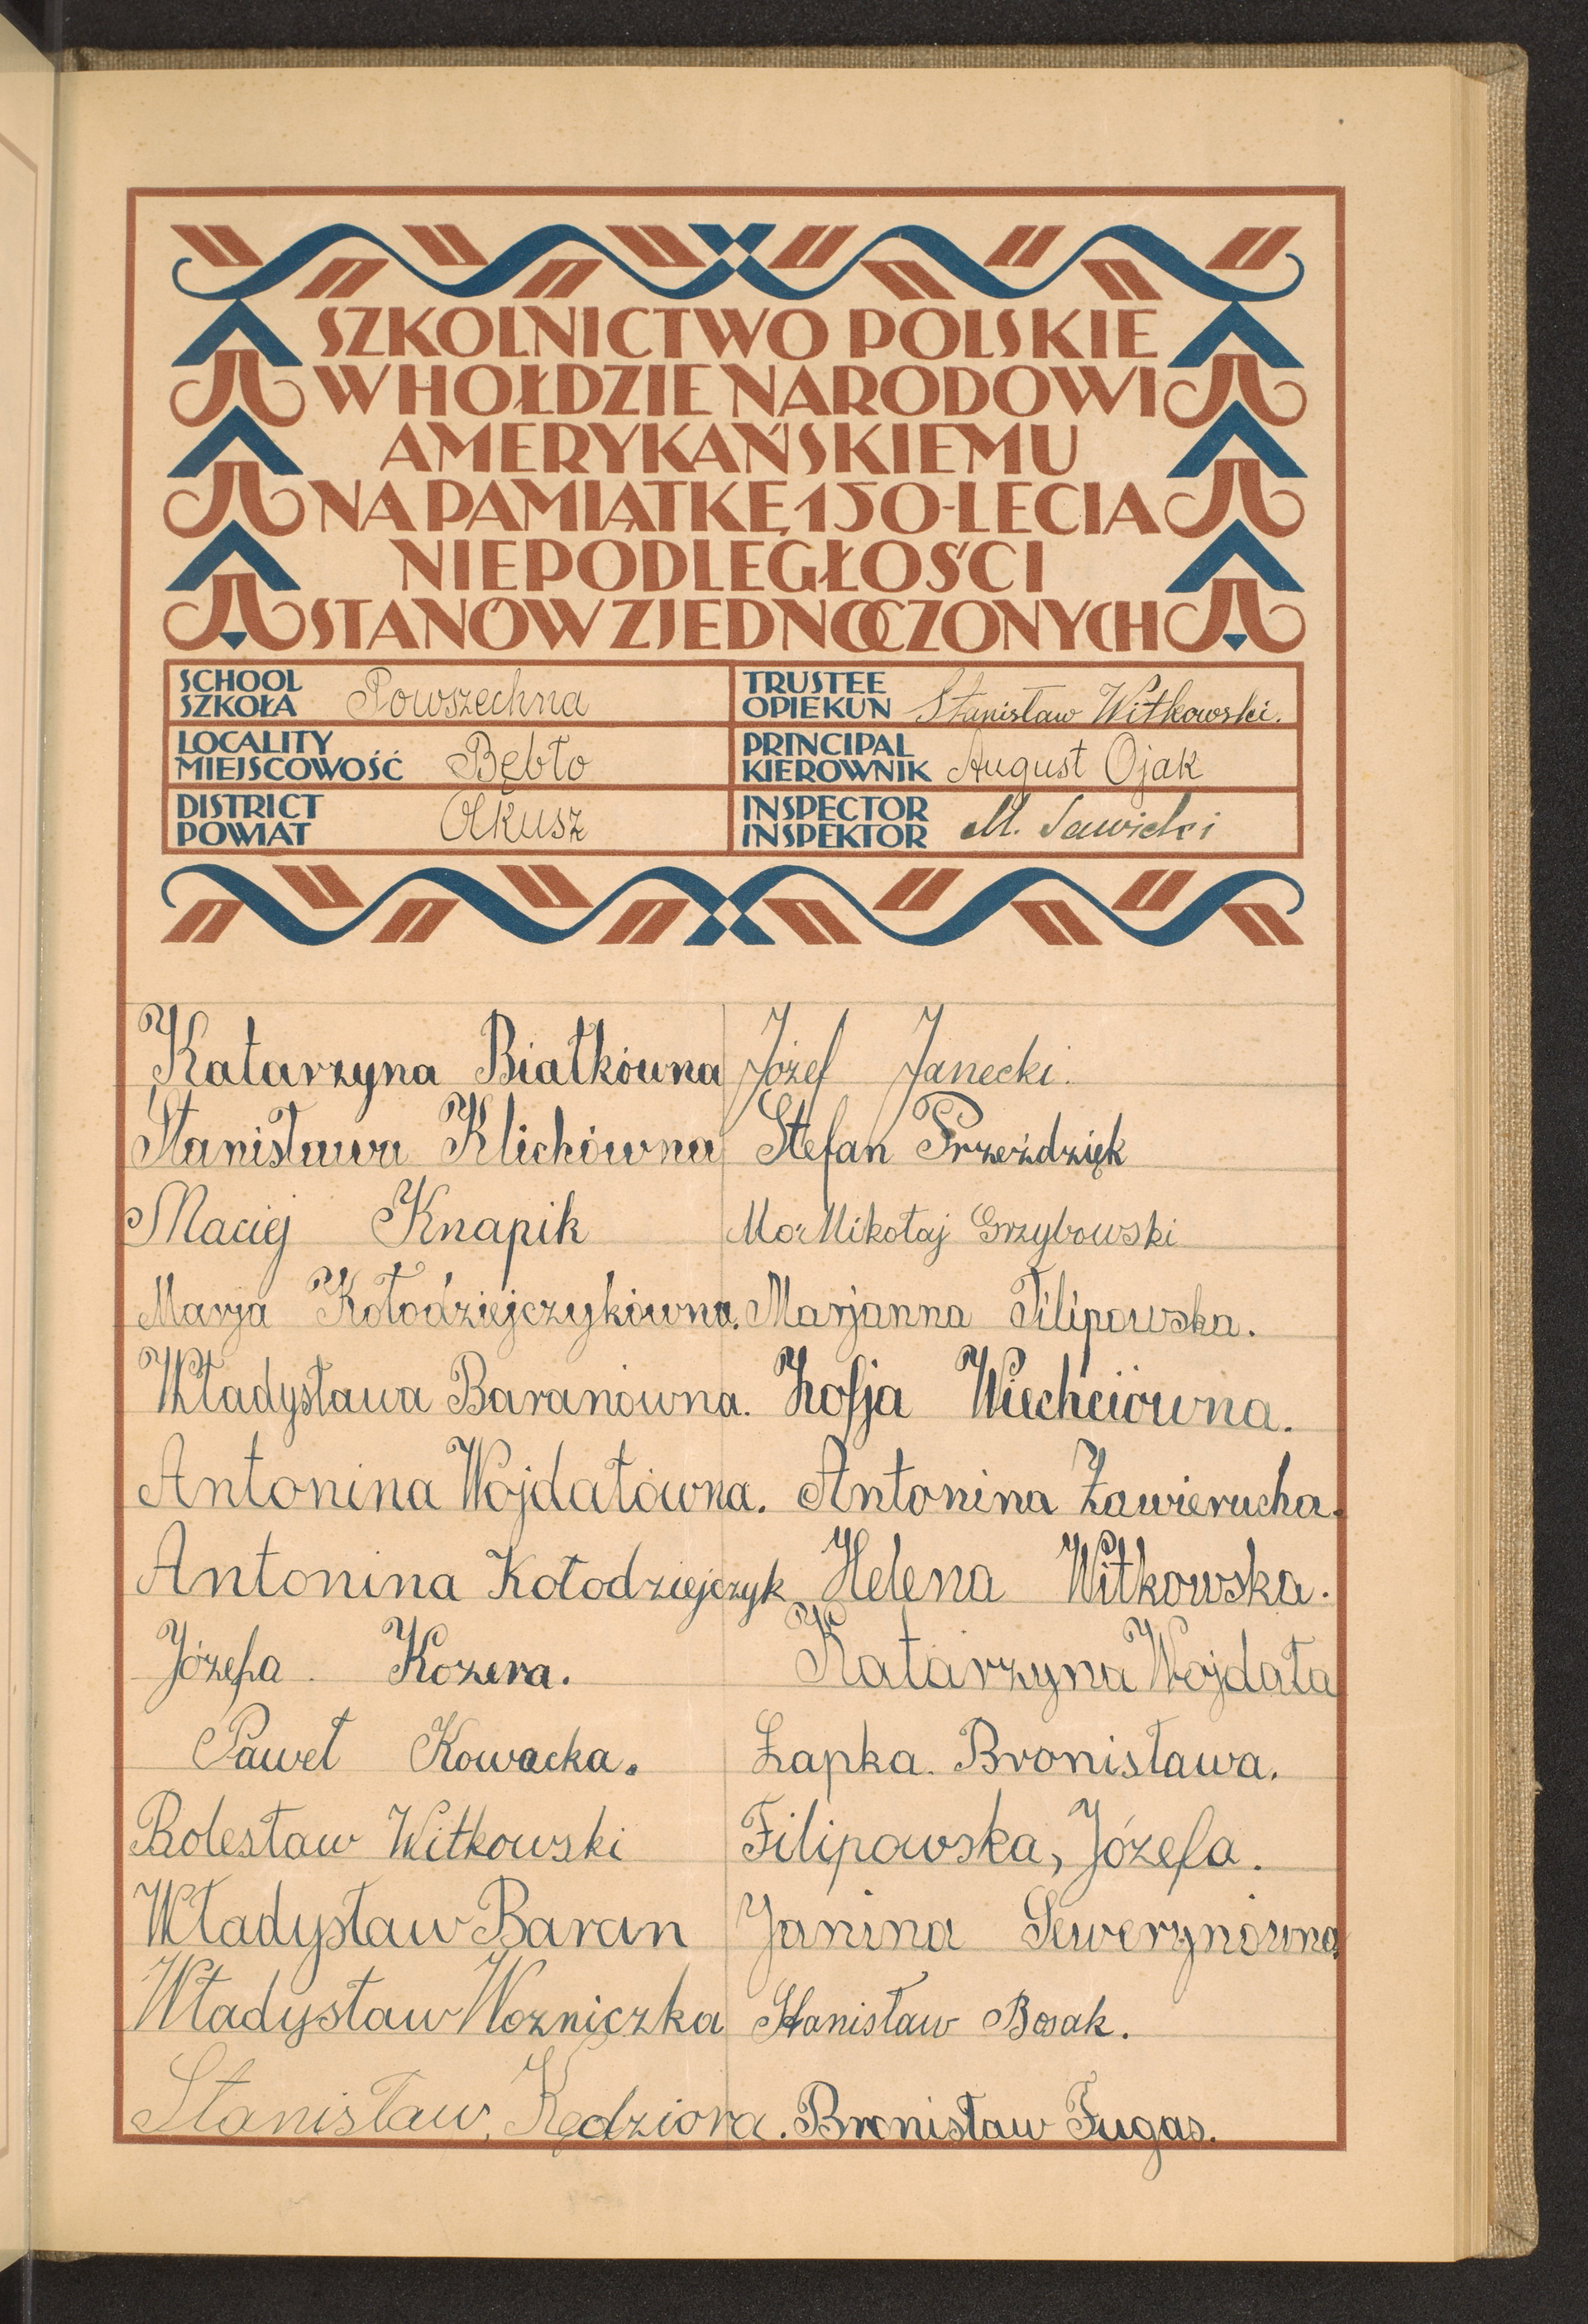 SZKOLNICTWO POLSKIE
W HOŁDZIE NARODOWI
AMERYKAŃSKIEMU
NA PAMIĄTKĘ 150-LECIA
NIEPODLEGŁOŚCI
STANÓW ZJEDNOCZONYCH
SCHOOL
SZKOŁA Powszechna
TRUSTEE
OPIEKUN Stanisław Witkowski.
LOCALITY
MIEJSCOWOŚĆ Bębło
PRINCIPAL
KIEROWNIK August Ojak
DISTRICT
POWIAT Olkusz
INSPECTOR
INSPEKTOR M. Sawicki
Katarzyna Białkówna
Józef Janecki.
Stanisława Klichówna
Stefan Przeździęk
Maciej Knapik
Mikołaj Grzybowski
Marja Kołodziejczykówna.
Marjanna Filipowska.
Władysława Baranówna.
Zofja Wiechciówna.
Antonina Wojdałówna.
Antonina Zawierucha.
Antonina Kołodziejczyk
Helena Witkowska.
Józefa Kozera.
Katarzyna Wojdała
Paweł Kowacka.
Łapka. Bronisława.
Bolesław Witkowski
Filipowska, Józefa.
Władysław Baran
Janina Sewerynówna
Władysław Wozniczka
Stanisław Bosak.
Stanisław, Kędziora.
Bronisław Fugas.